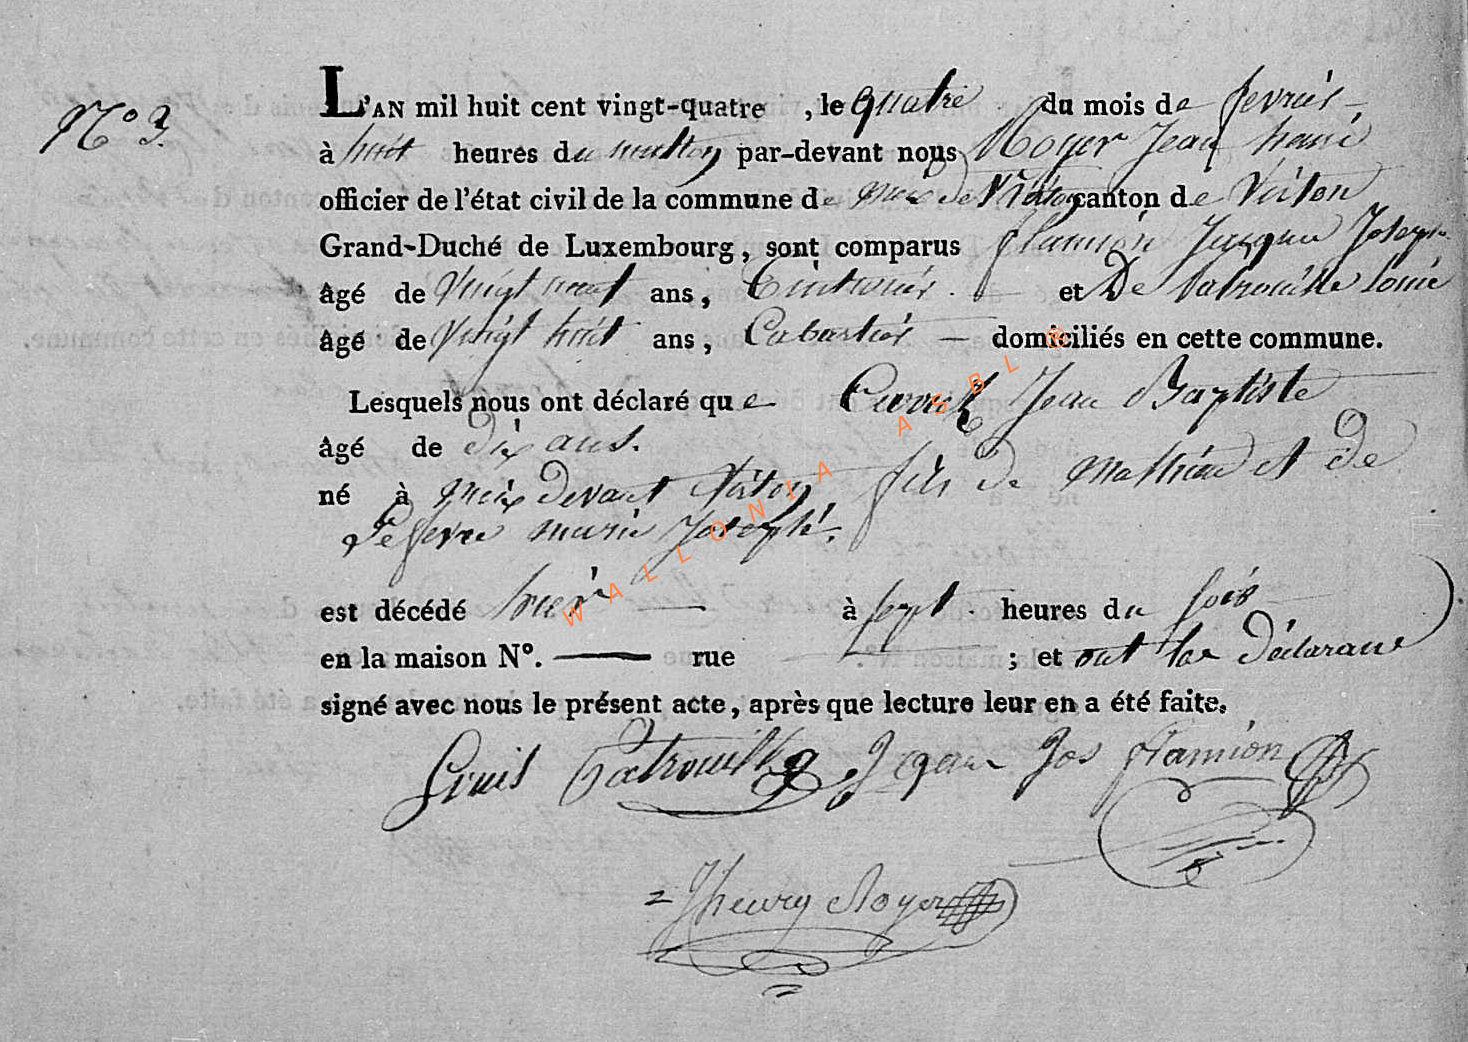 N° 3.
L'AN mil huit cent vingt-quatre , le quatre du mois de fevrier
à huit heures du matin par-devant nous Royer Jean henri
officier de l'état civil de la commune de meix devt Virton canton de Virton
Grand-Duché de Luxembourg, sont comparus flamion Jacques Joseph
âgé de Vingt neuf ans, et De patrouille Louis
âgé de Vingt huit ans, Cabartier — domiciliés en cette commune.
Lesquels nous ont déclaré que Jean Baptiste
âgé de dix ans.
né à meix devant Virton fils de Mathieu et de
Lefevre marie Josephe.
est décédé hier à sept heures du soir
en la maison N°. — rue ; et ont les déclarans
signé avec nous le présent acte, après que lecture leur en a été faite.
Louis Patrouille Jos flamion
Jhenry Royer
WALLONIA ASBL ®